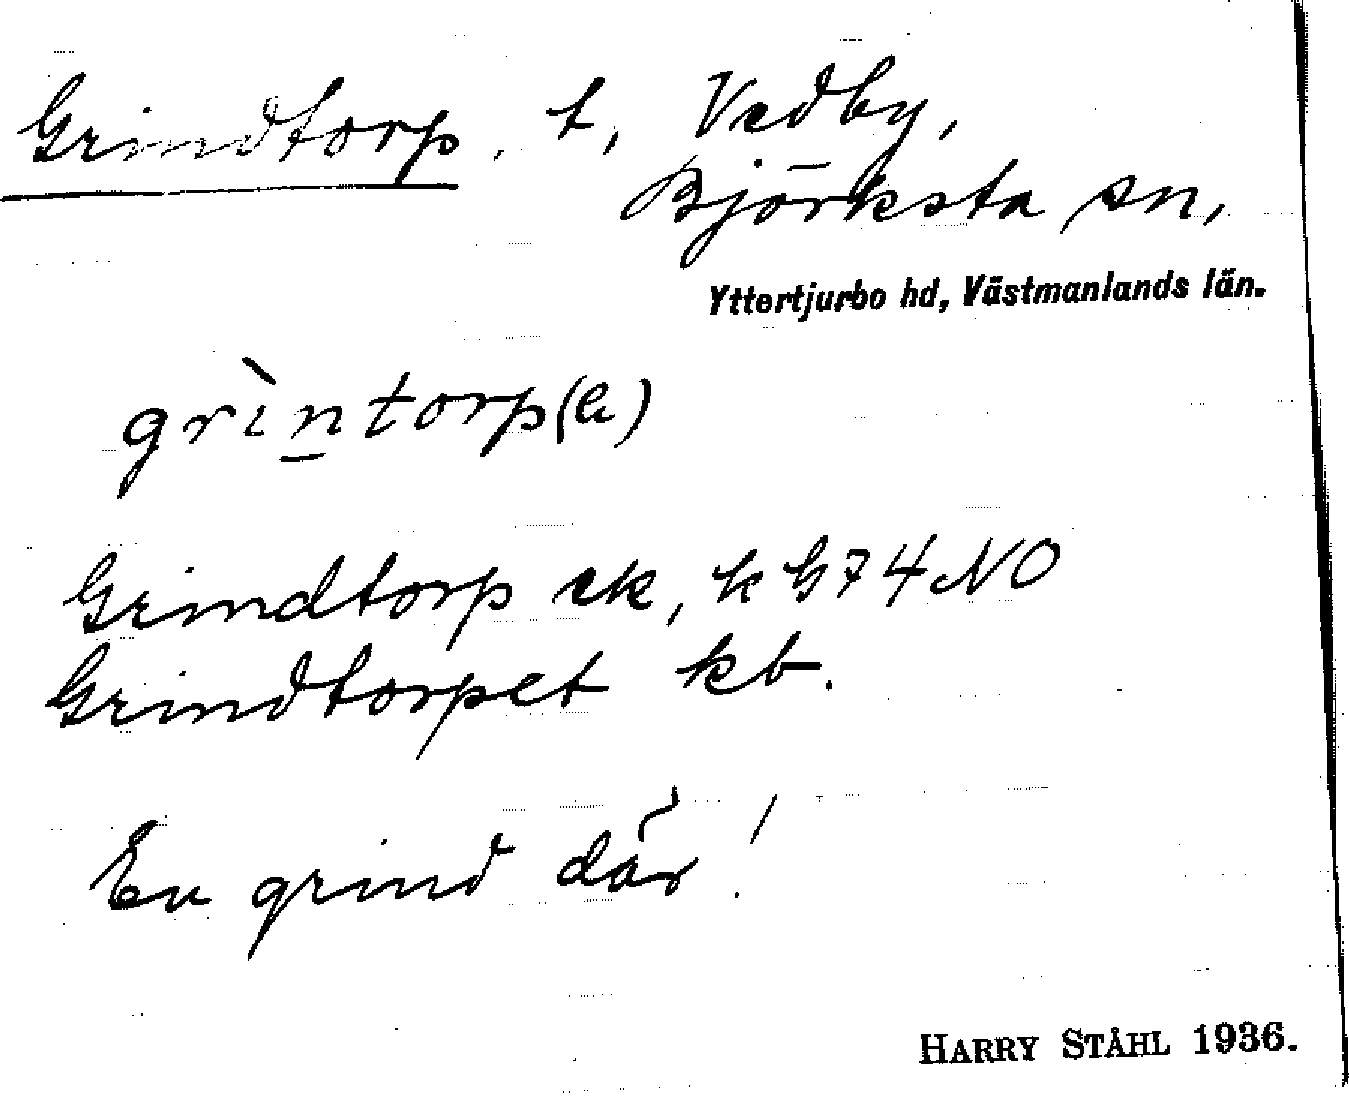 Grindtorp, t, Vedby,
Björksta sn,
Yttertjurbo hd, Västmanlands län.
grìn̲torp(e)
Grindtorp ek, k G74 NO
Grindtorpet kb.
En grind där!
HARRY STÅHL 1936.